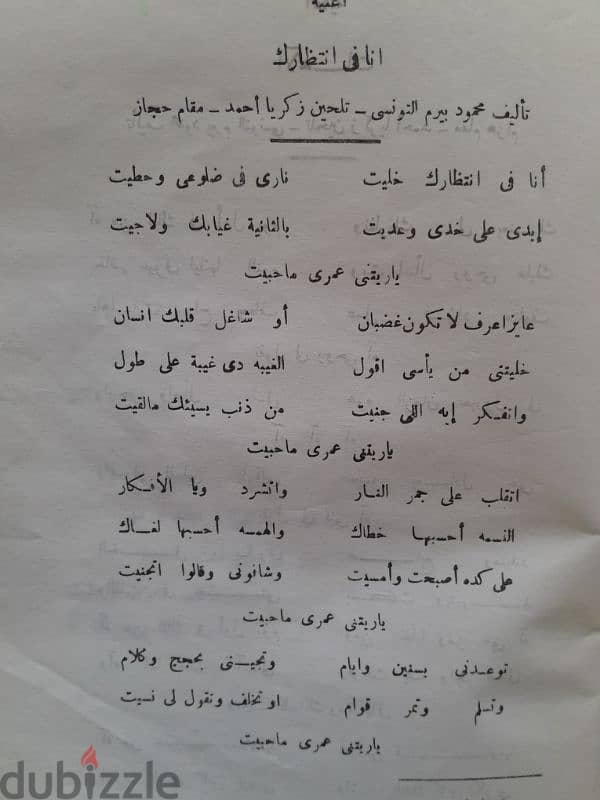 اغنية
انا فى انتظارك
تأليف محمود بيرم التونسى ـ تلحين زكريا أحمد ـ مقام حجاز
أنا فى انتظارك خليت نارى فى ضلوعى وحطيت
إيدى على خدى وعديت بالثانية غيابك ولاجيت
ياريتنى عمرى ماحبيت
عايزاعرف لا تكون غضبان أو شاغل قلبك انسان
خليتنى من يأسى اقول الغيبه دى غيبة على طول
وانفكر إيه اللى جنيت من ذنب يسيئك مالقيت
ياريتنى عمرى ماحبيت
اتقلب على جمر النار واتشرد ويا الأفكار
النسمه أحسبها خطاك والهمسه أحسبها لغاك
على كده أصبحت وأمسيت وشافونى وقالوا اتجنيت
ياريتنى عمرى ماحبيت
توعدنى بسنين وايام وتجينى بحجج وكلام
وتسلم وتمر قوام او تخلف وتقول لى نسيت
ياريتنى عمرى ماحبيت
dubizzle